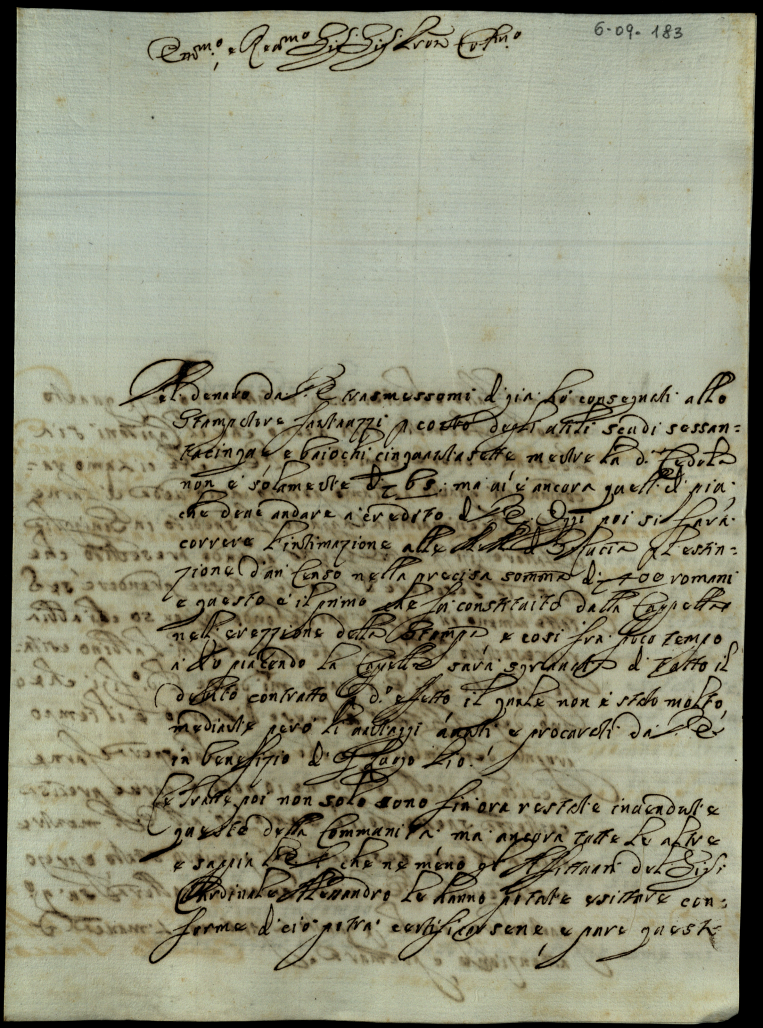 6-09-183
Sig. Sig. Pron Col.mo
Nel denaro da V.E trasmessomi di gia ho consegnati allo
Stampatore p. conto degli utili scudi sessan=
tacinque e baiochi cinquantasette mentre la d. Cedola
non è solamente di 65: ma vi è ancora quell di più
che deve andare a credito di V.E. Oggi poi si fara
correre l'intimazione alle di S. Lucia p. l'estin=
zione d'un Censo nella precisa somma di 400 romani
e questo è il primo che fu constituito dalla Cappella
nell'erezzione della Stampa e cosi fra poco tempo
a Dio piacendo la Capella sarà sgravata di tutto il
debito contratto p. d.o effetto il quale non è stato molto,
mediante però li avuti e procurati da V.E
in benefizio di Luogo Pio.
Le poi non solo sono fin'ora restate invendute
queste della Communità ma ancora tutte le altre
e sappia V.E che ne meno gl'Affittuari del Sig.
Cardinale Alessandro le hanno potute esittare con=
forme di ciò potrà certificarsene, e pure queste